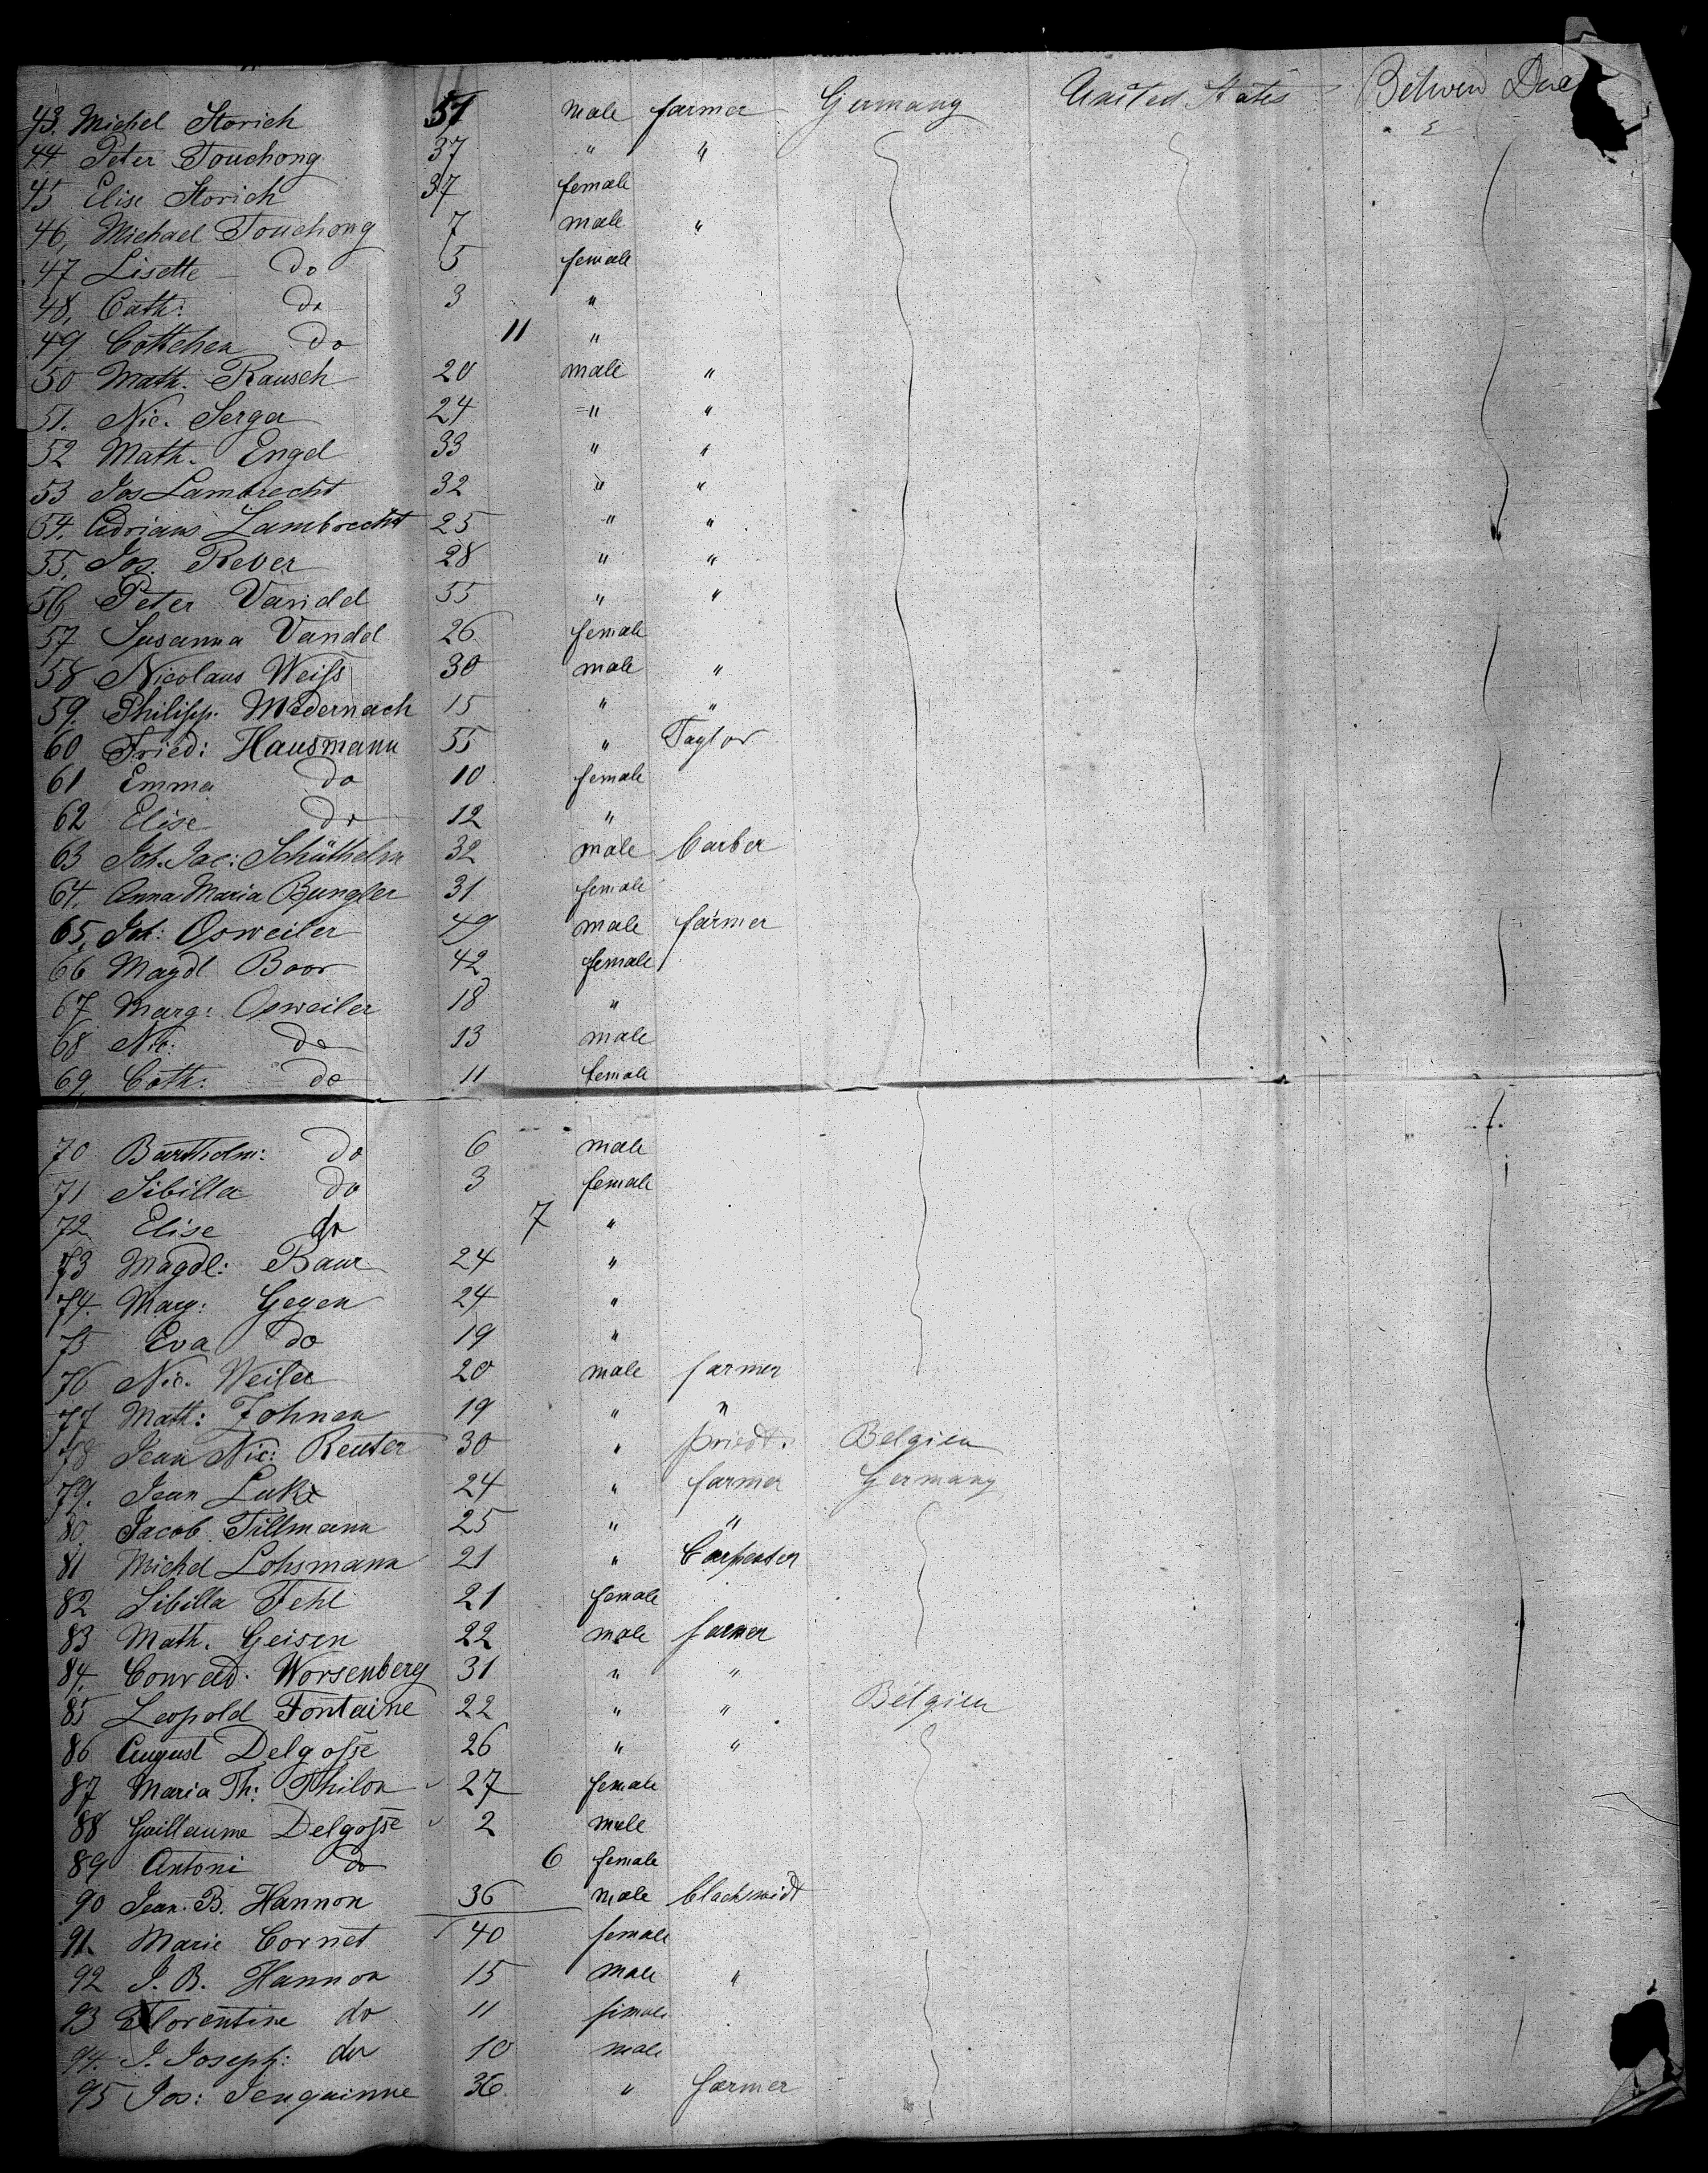 43. Michel Storich 51 male farmer Germany United States Betwen Dec
44 Peter Touchong 37 " "
45 Elise Storich 37 female
46, Michael Touchong 7 male "
47 Lisette do 5 female
48, Cath: do 3 "
49 Cottchen do 11 "
50 Math. Rausch 20 male "
51. Nic. Serger 24 " "
52 Math. Engel 33 " "
53 Jos Lambrecht 32 " "
54. Adrians Lambrecht 25 " "
55, Jos. Rever 28 " "
56 Peter Vandel 55 " "
57 Susanna Vandel 26 female
58 Nicolaus Weiss 30 male "
59. Philipp. Medernach 15 " "
60 Fried: Hausmann 55 " Taylor
61 Emma do 10 female
62 Elise do 12 "
63 Joh. Jac: Schüthelm 32 male barber
64, Anna Maria Bungler 31 female
65, Joh: Osweiler 49 male farmer
66 Magdl Boor 42 female
67 Marg: Osweiler 18 "
68 Nic: do 13 male
69, Cath: do 11 female
70 Bartholm: do 6 male
71 Sibilla do 3 female
72 Elise do 7 "
73 Magdl: Baur 24 "
74. Marg: Gegen 24 "
75 Eva do 19 "
76 Nic. Weiler 20 male farmer
77 Math: Johnen 19 " "
78 Jean Nic: Reuter 30 " priest. Belgien
79. Jean Luke 24 " farmer Germany
80 Jacob Tillmann 25 " "
81 Michel Lohsmann 21 " Carpenter
82 Sibilla Fehl 21 female
83 Math. Geisen 22 male farmer
84. Conrad. Worsenberg 31 " "
85 Leopold Fontaine 22 " " Belgien
86 August Delgosse 26 " "
87 Maria Th: Thilon 27 female
88 Guillaume Delgosse 2 male
89 Antoni do 6 female
90 Jean. B. Hannon 36 male blacksmidt
91. Marie Cornet 40 female
92 J. B. Hannon 15 male "
93 Florentine do 11 female
94. J. Joseph: do 10 male
95 Jos: Jenquinne 36 " farmer